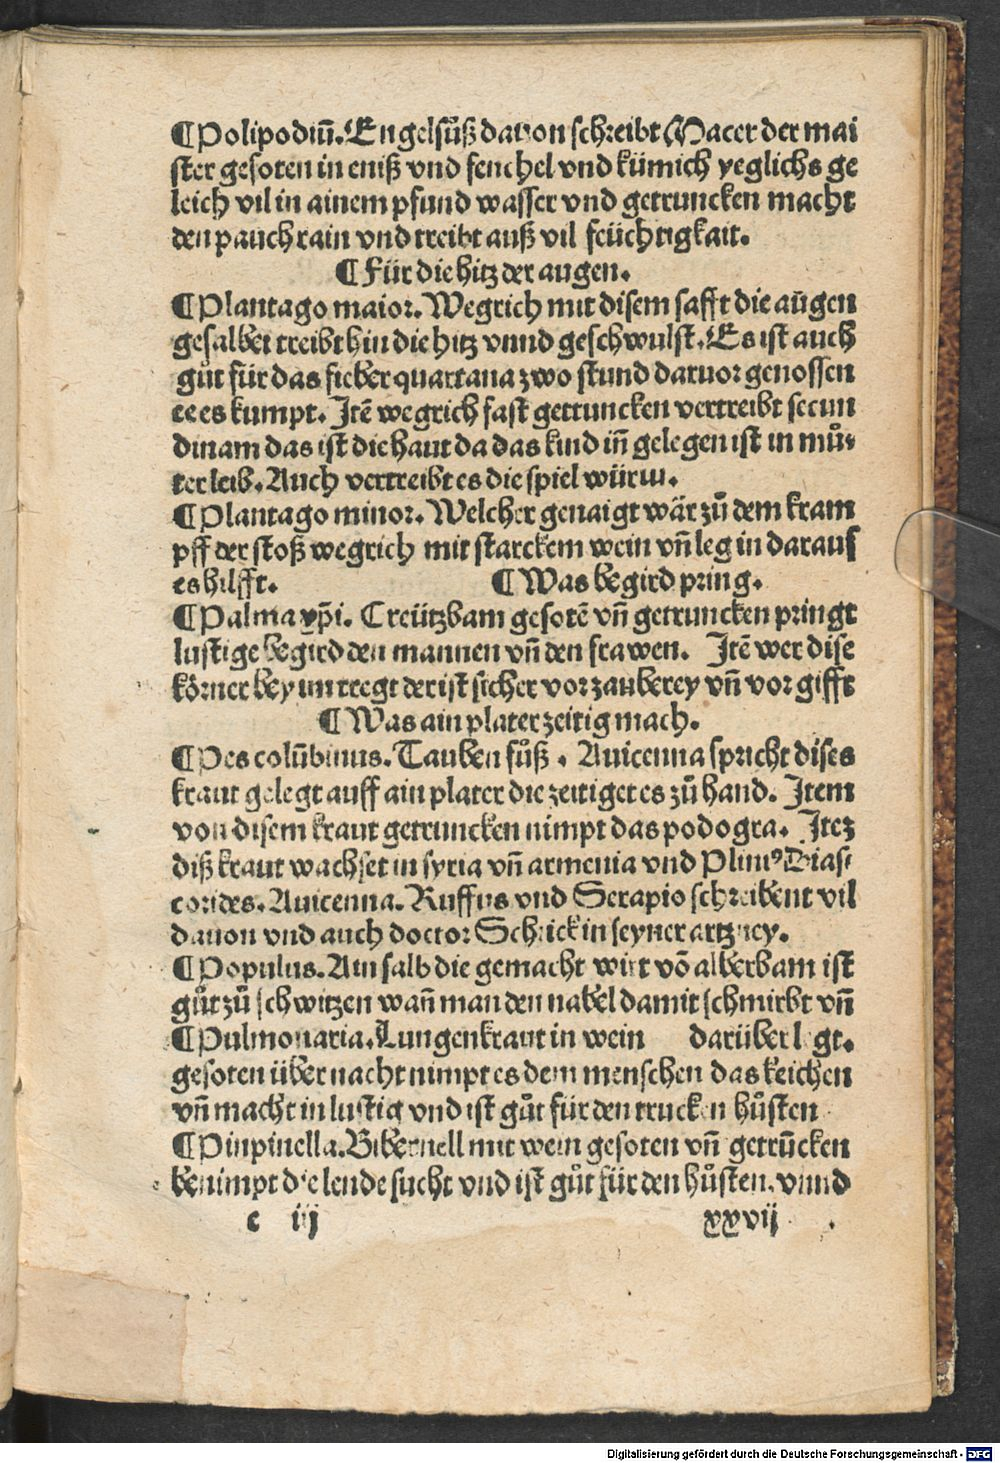 ¶ Polipodiū. Engelsuͤß dauon schreibt Macer der mai
ster gesoten in eniß vnd fenchel vnd kümich yeglichs ge
leich vil in ainem pfund wasser vnd getruncken macht
den pauch rain vnd treibt auß vil feüchtigkait.
¶ Für die hitz der augen.
¶ Plantago maior. Wegrich mit disem safft die augen
gesalbet treibt hin die hitz vnnd geschwulst. Es ist auch
guͦt für das fieber quartana zwo stund daruor genossen
ee es kumpt. Itē wegrich fast getruncken vertreibt secun
dinam das ist die haut da das kind iñ gelegen ist in muͦ-
ter leib. Auch vertreibt es die spiel würm.
¶ Plantago minor. Welcher genaigt wär zuͦ dem kram
pff der stoß wegrich mit starckem wein vñ leg in daraus
es hilfft. ¶ Was begird pring.
¶ Palma xp̄i. Creützbam gesotē vñ getruncken pringt
lustige begird den mannen vñ den frawen. Itē wer dise
körner bey im tregt der ist sicher vor zauberey vñ vor gifft
¶ Was ain plater zeitig mach.
¶ Pes colūbinus. Tauben fuͦß. Auicenna spricht dises
kraut gelegt auff ain plater die zeitiget es zuͦ hand. Item
von disem kraut getruncken nimpt das podogra. Itez
diß kraut wachset in syria vñ armenia vnd Plini⁹ Dias-
corides. Auicenna. Ruffus vnd Serapio schreibent vil
dauon vnd auch doctor Schrick in seyner artzney.
¶ Populus. Ain salb die gemacht wirt vō alberbam ist
guͦt zuͦ schwitzen wañ man den nabel damit schmirbt vñ
¶ Pulmonaria. Lungenkraut in wein darüber legt.
gesoten über nacht nimpt es dem menschen das keichen
vñ macht in lustig vnd ist guͦt für den trucken huͦsten
¶ Pinpinella. Bibernell mit wein gesoten vñ getrūcken
benimpt die lende sucht vnd ist guͦt für den huͦsten. vnnd
c iij xxvij
Digitalisierung gefördert durch die Deutsche Forschungsgemeinschaft - DFG